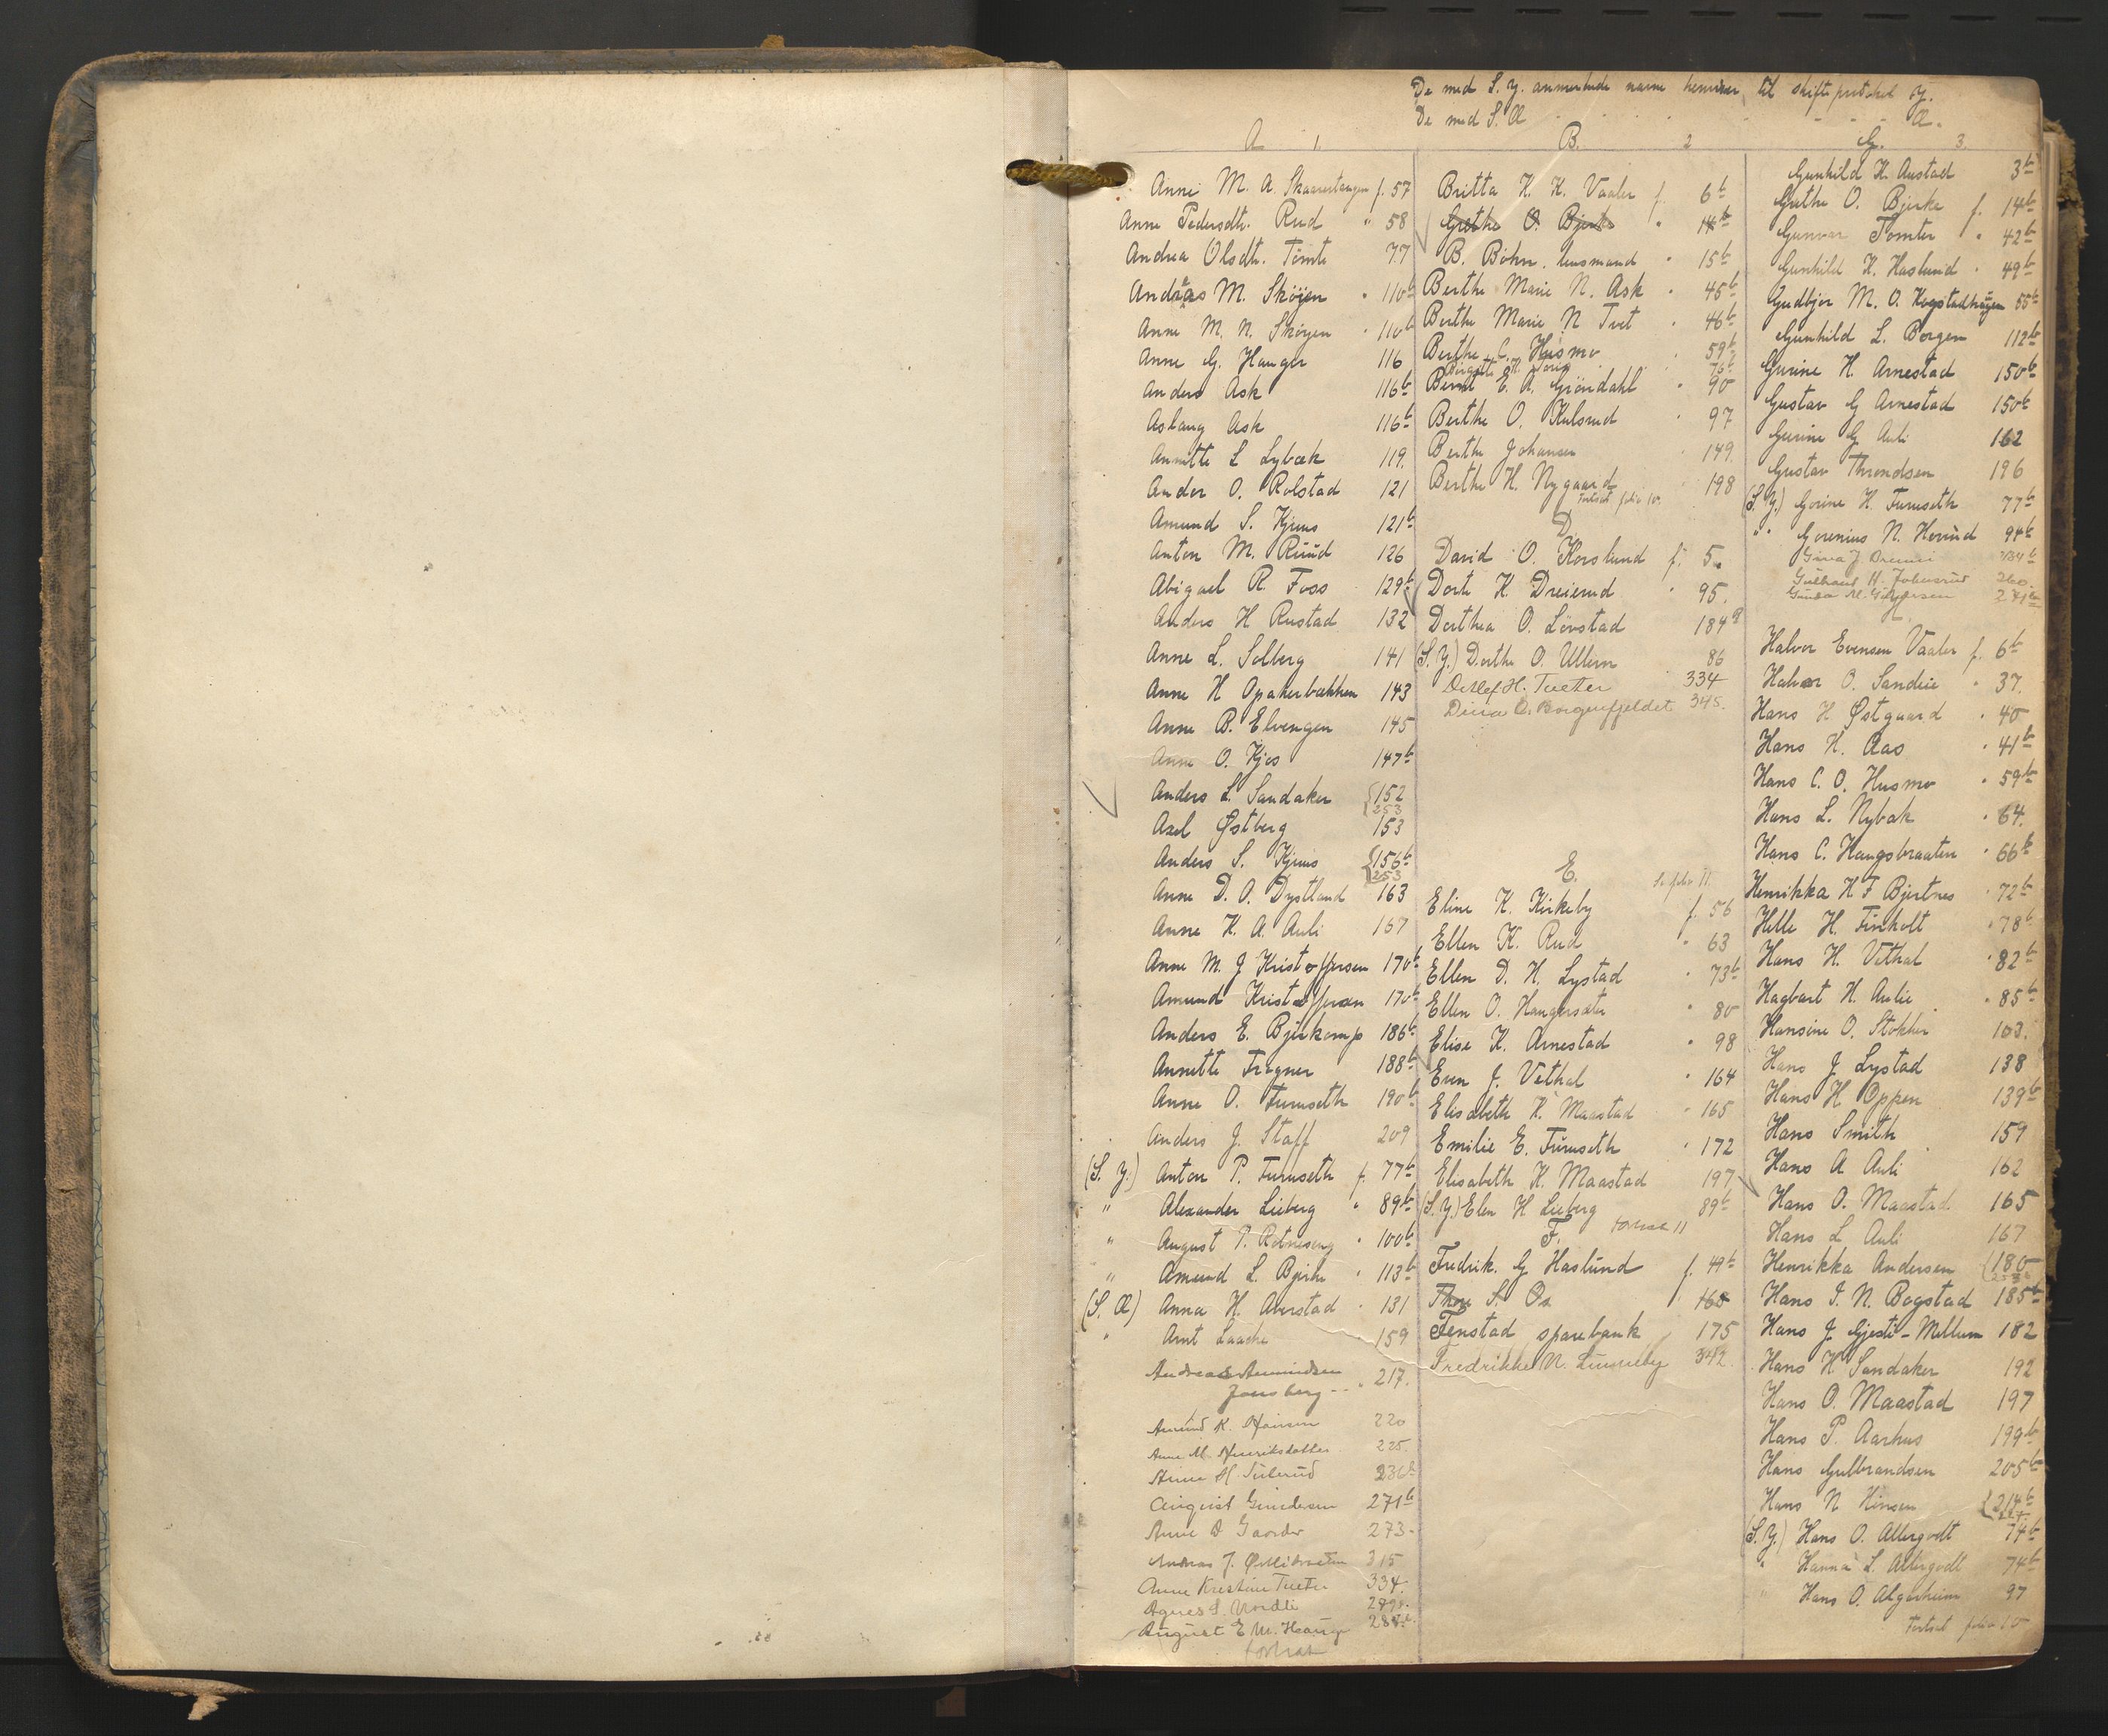 De med S. Y. anmerkede navne henviser til skifteprotokol Y.
De med S. Æ - - - Æ.
A 1.
Anne M. A. Skaarertangen f. 57
Anne Pedersdtr. Rud " 58
Andrea Olsdtr. Tømte 77
Andreas M. Skøyen " 110b
Anne M. N. Skøyen " 110b
Anne G. Hauger 116
Anders Ask 116b
Aslaug Ask 116b
Annette L Lybæk 119.
Ander O. Rolstad 121
Amund S. Kjuus 121b
Anton M. Ruud 126
Abigael R. Foss 129b
Anders H Rustad 132
Anne L. Solberg 141
Anne H Opakerbækken 143
Anne B. Elvengen 145
Anne O. Kjos 147b
Anders L. Sandaker 152
253
Axel Østberg 153
Anders S. Kjuus 156b
253
Anne D. O. Dystland 163
Anne K. A. Auli 167
Anne M. J Kristoffersen 170b
Amund Kristoffersen 170b
Anders E. Bjerkomp 186b
Annette Fragner 188b
Anne O. Furuseth 190b
Anders J. Staff 209
(S. Y.) Anton P. Furuseth f. 77b
" Alexander Lieberg " 89b
" August P. Rotneseng " 100b
" Amund L. Bjerke " 113b
(S. Æ) Anna H. Aberstad " 131
" Arnt Laache 159
Andreas Amundsen
Jonsberg -- " 217.
Amund K. Hansen 220
Anne M. Henriksdatter 225.
Anne H. Julsrud 236b
August Gundersen 271b
Anne D Gaarder 273-
Andreas J. 315
Anne Kristine Tueter 334.
Agnes S. Nordli
August E M. Hauge
fortsat
B. 2
Britta K. K. Vaaler f. 6b
Grethe O. Bjerke " 14b
B. Böhn. lensmand " 15b
Berthe Marie N. Ask " 45b
Berthe Marie N Tvet " 46b
Berthe C. Husmo " 59b
Bernt E. A. Gröndahl " 90
Berthe O. Kulsrud " 97
Berthe Johansen 149.
Berthe H. Nygaard 198
Fortsat folio 10.
D.
David O. Korslund f. 5.
Dorte K. Dreierud " 95.
Dorthea O. Lövstad 184a
(S. Y.) Dorthe O. Ullern 86
Detlef H. Tueter 334
Dina O. Borgenfjeldet 345.
E.
Se folio 11.
Eline K. Kirkeby f. 56
Ellen K. Rud " 63
Ellen D. H. Lystad " 73b
Ellen O. Haugersæter " 80
Elise K. Arnestad " 98
Even J. Vethal " 164
Elisabeth K. Maastad " 165
Emilie E. Furuseth " 172
Elisabeth K. Maastad 197
(S. Y.) Elen H Lieberg 89b
F. fortsat 11
Fredrik. G Haslund f. 49b
Thor S. Os 168
Fenstad sparebank 175
Fredrikke N. Linneby 342.
G. 3.
Gunhild H. Austad 3b
Grethe O. Bjerke f. 14b
Gunvor Tomter " 42b
Gunhild K. Haslund " 49b
Gudbjor M. O. Kogstadhaugen 55b
Gunhild L. Borgen 112b
Gurine H. Arnestad 150b
Gustav G Arnestad 150b
Gurine G Auli 162
Gustav Throndsen 196
(S. Y.) Gorine H. Furuseth 77b
" Gorenius N. Herud 94b
Gina J
Gulbrand H. 260.
H.
Halvor Evensen Vaaler f. 6b
Halvor O. Sandvie " 37.
Hans H Østgaard " 40
Hans K. Aas " 41b
Hans C. O. Husmo " 59b
Hans L. Nybak " 64.
Hans C. Haugsbraaten " 66b
Henrikka H F Bjertnes " 72b
Helle H. Finholt " 78b
Hans H. Vethal " 82b
Hagbart H. Aulie " 85b
Hansine O. Stokker 103.
Hans J Lystad 138
Hans H Oppen 139b
Hans Smith 159
Hans A Auli 162
Hans O. Maastad 165
Hans L Auli 167
Henrikka Andersen 180
Hans I. N. Bogstad 185b
Hans J. Gjeste-Mellum 182
Hans K Sandaker 192
Hans O. Maastad 197
Hans P. Aarhus 199b
Hans Gulbrandsen 205b
Hans N Hinsen 214b
(S. Y.) Hans O. Allergodt 74b
" Hanna L. Allergodt 74b
" Hans O. Algarheim 97
Fortsat folio 10